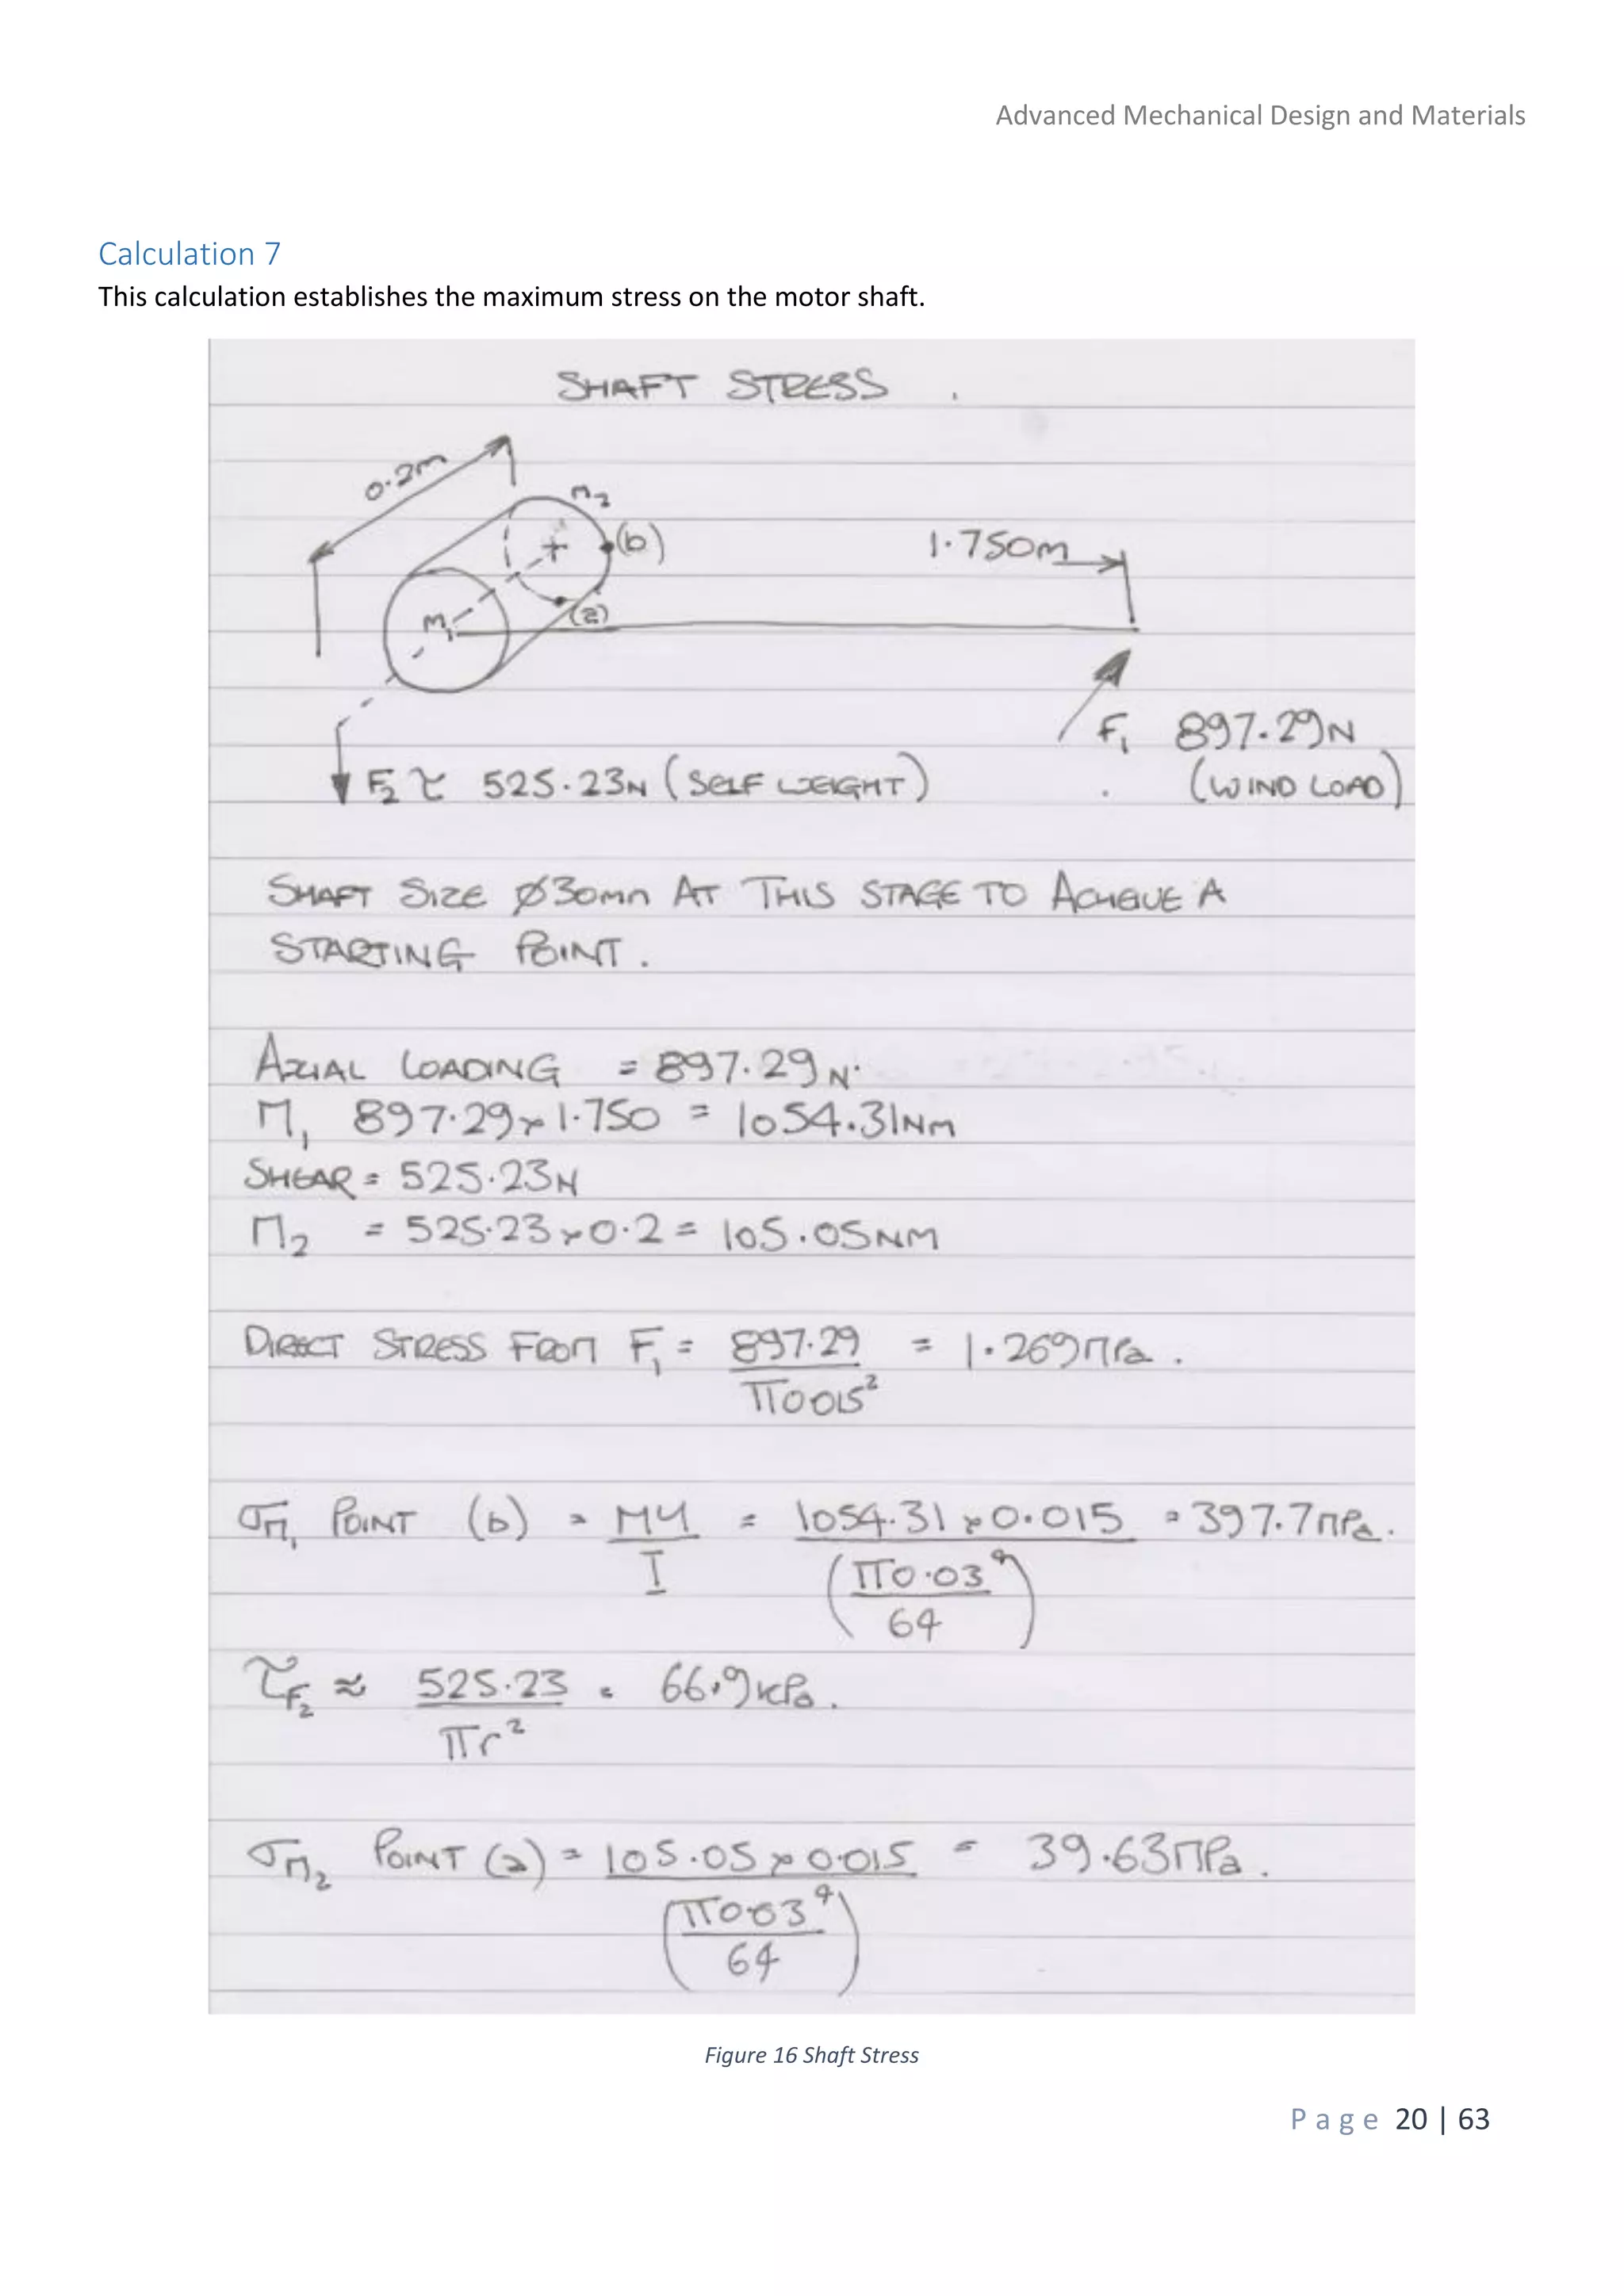 Advanced Mechanical Design and Materials
Calculation 7
This calculation establishes the maximum stress on the motor shaft.
SHAFT STRESS .
0.2m
M2
(b)
1.750m
M1
(a)
F1 897.29N
F2 τ 525.23N (SELF WEIGHT)
(WIND LOAD)
SHAFT SIZE Ø30mm AT THIS STAGE TO ACHEIVE A
STARTING POINT.
AXIAL LOADING = 897.29N.
M1 897.29 x 1.750 = 1054.31Nm
SHEAR = 525.23N
M2 = 525.23 x 0.2 = 105.05NM
DIRECT STRESS FROM F1 = 897.29 = 1.269MPa.
π0.015²
σM1 POINT (b) = MY = 1054.31 x 0.015 = 397.7MPa.
I (π0.03⁴
64)
τF2 ≈ 525.23 = 66.9kPa.
πr²
σM2 POINT (a) = 105.05 x 0.015 = 39.63MPa.
(π0.03⁴
64)
Figure 16 Shaft Stress
Page 20 | 63